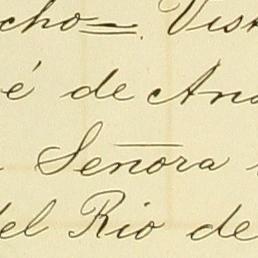 cho=. Vist
é de And
Señora
del Rio de